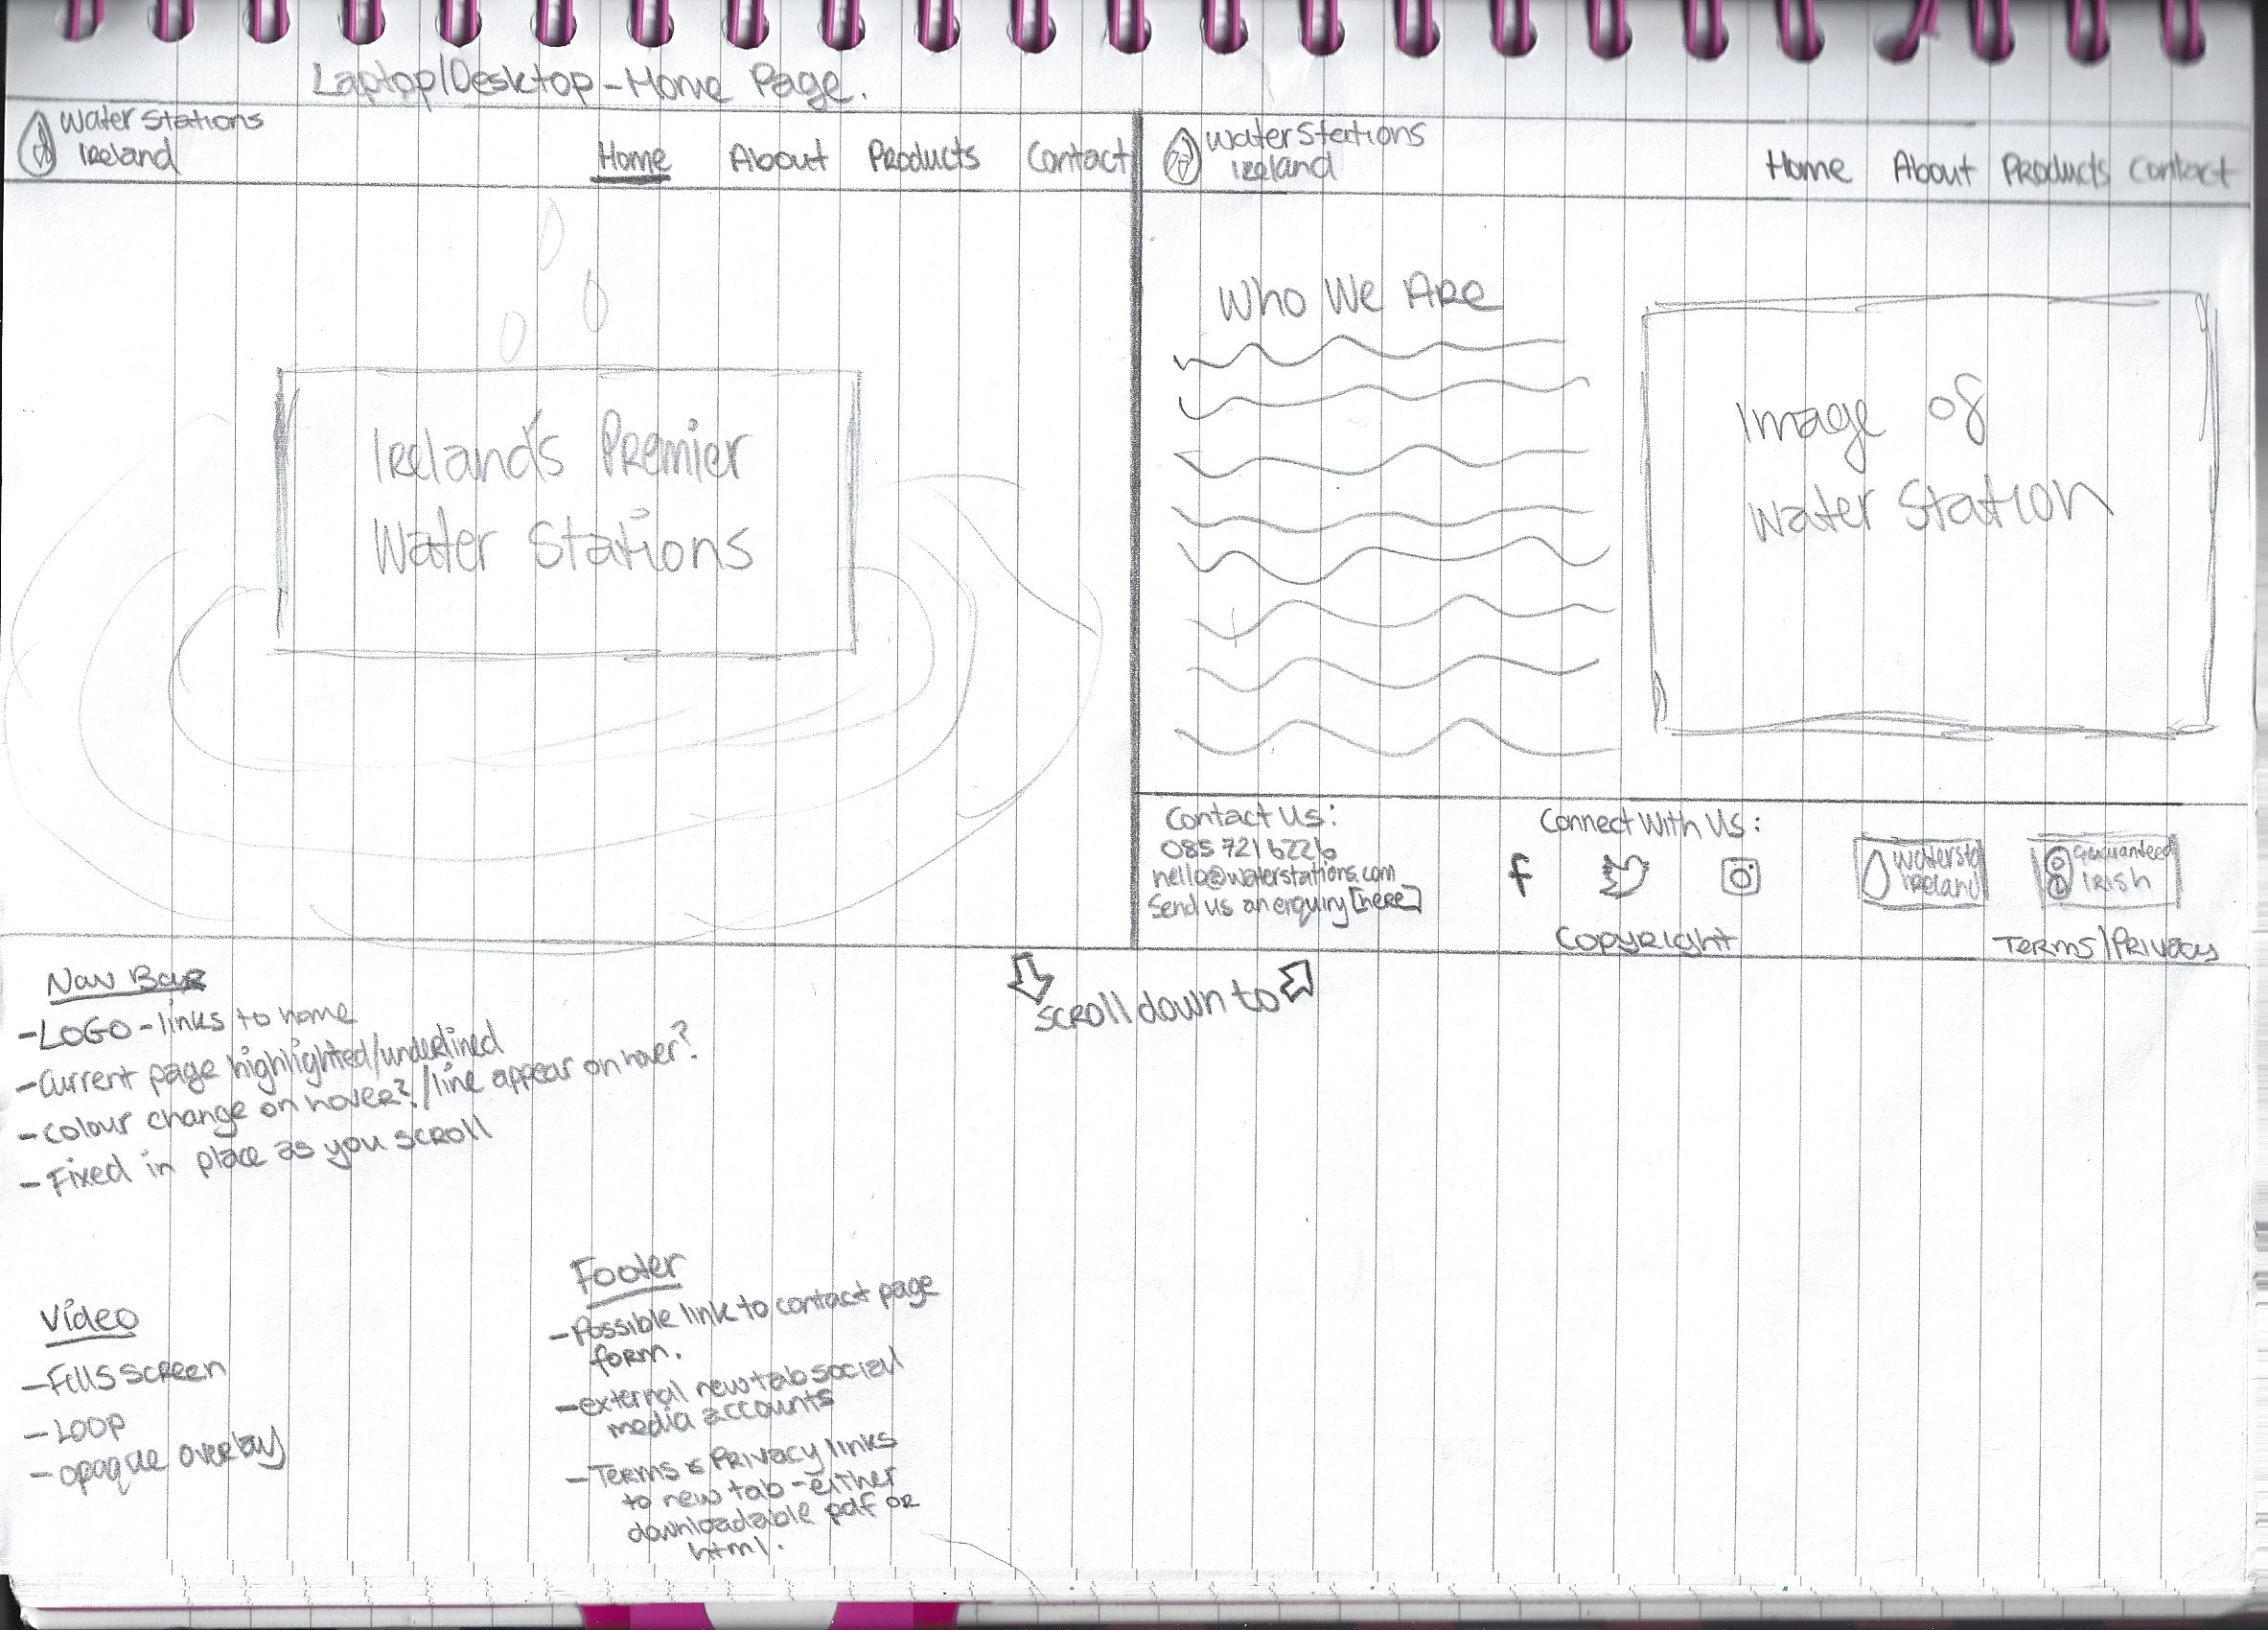 Laptop/Desktop - Home Page.
Water Stations
Ireland
Home About Products Contact
Ireland's Premier
Water Stations
Water Stations
Ireland
Home About Products Contact
Who We Are
Image of
Water Station
Contact Us:
085 7216226
hello@waterstations.com
Send us an enquiry [here]
Connect With Us:
f
Ireland
Guaranteed
Irish
Copyright
Terms/Privacy
Scroll down to
Nav Bar
- LOGO - links to home
- Current page highlighted/underlined
- Colour change on hover?/line appear on hover?
- Fixed in place as you scroll
Video
- Fills screen
- Loop
- opaque overlay
Footer
- Possible link to contact page
form.
- external new tab social
media accounts
- Terms & Privacy links
to new tab - either
downloadable pdf or
html.